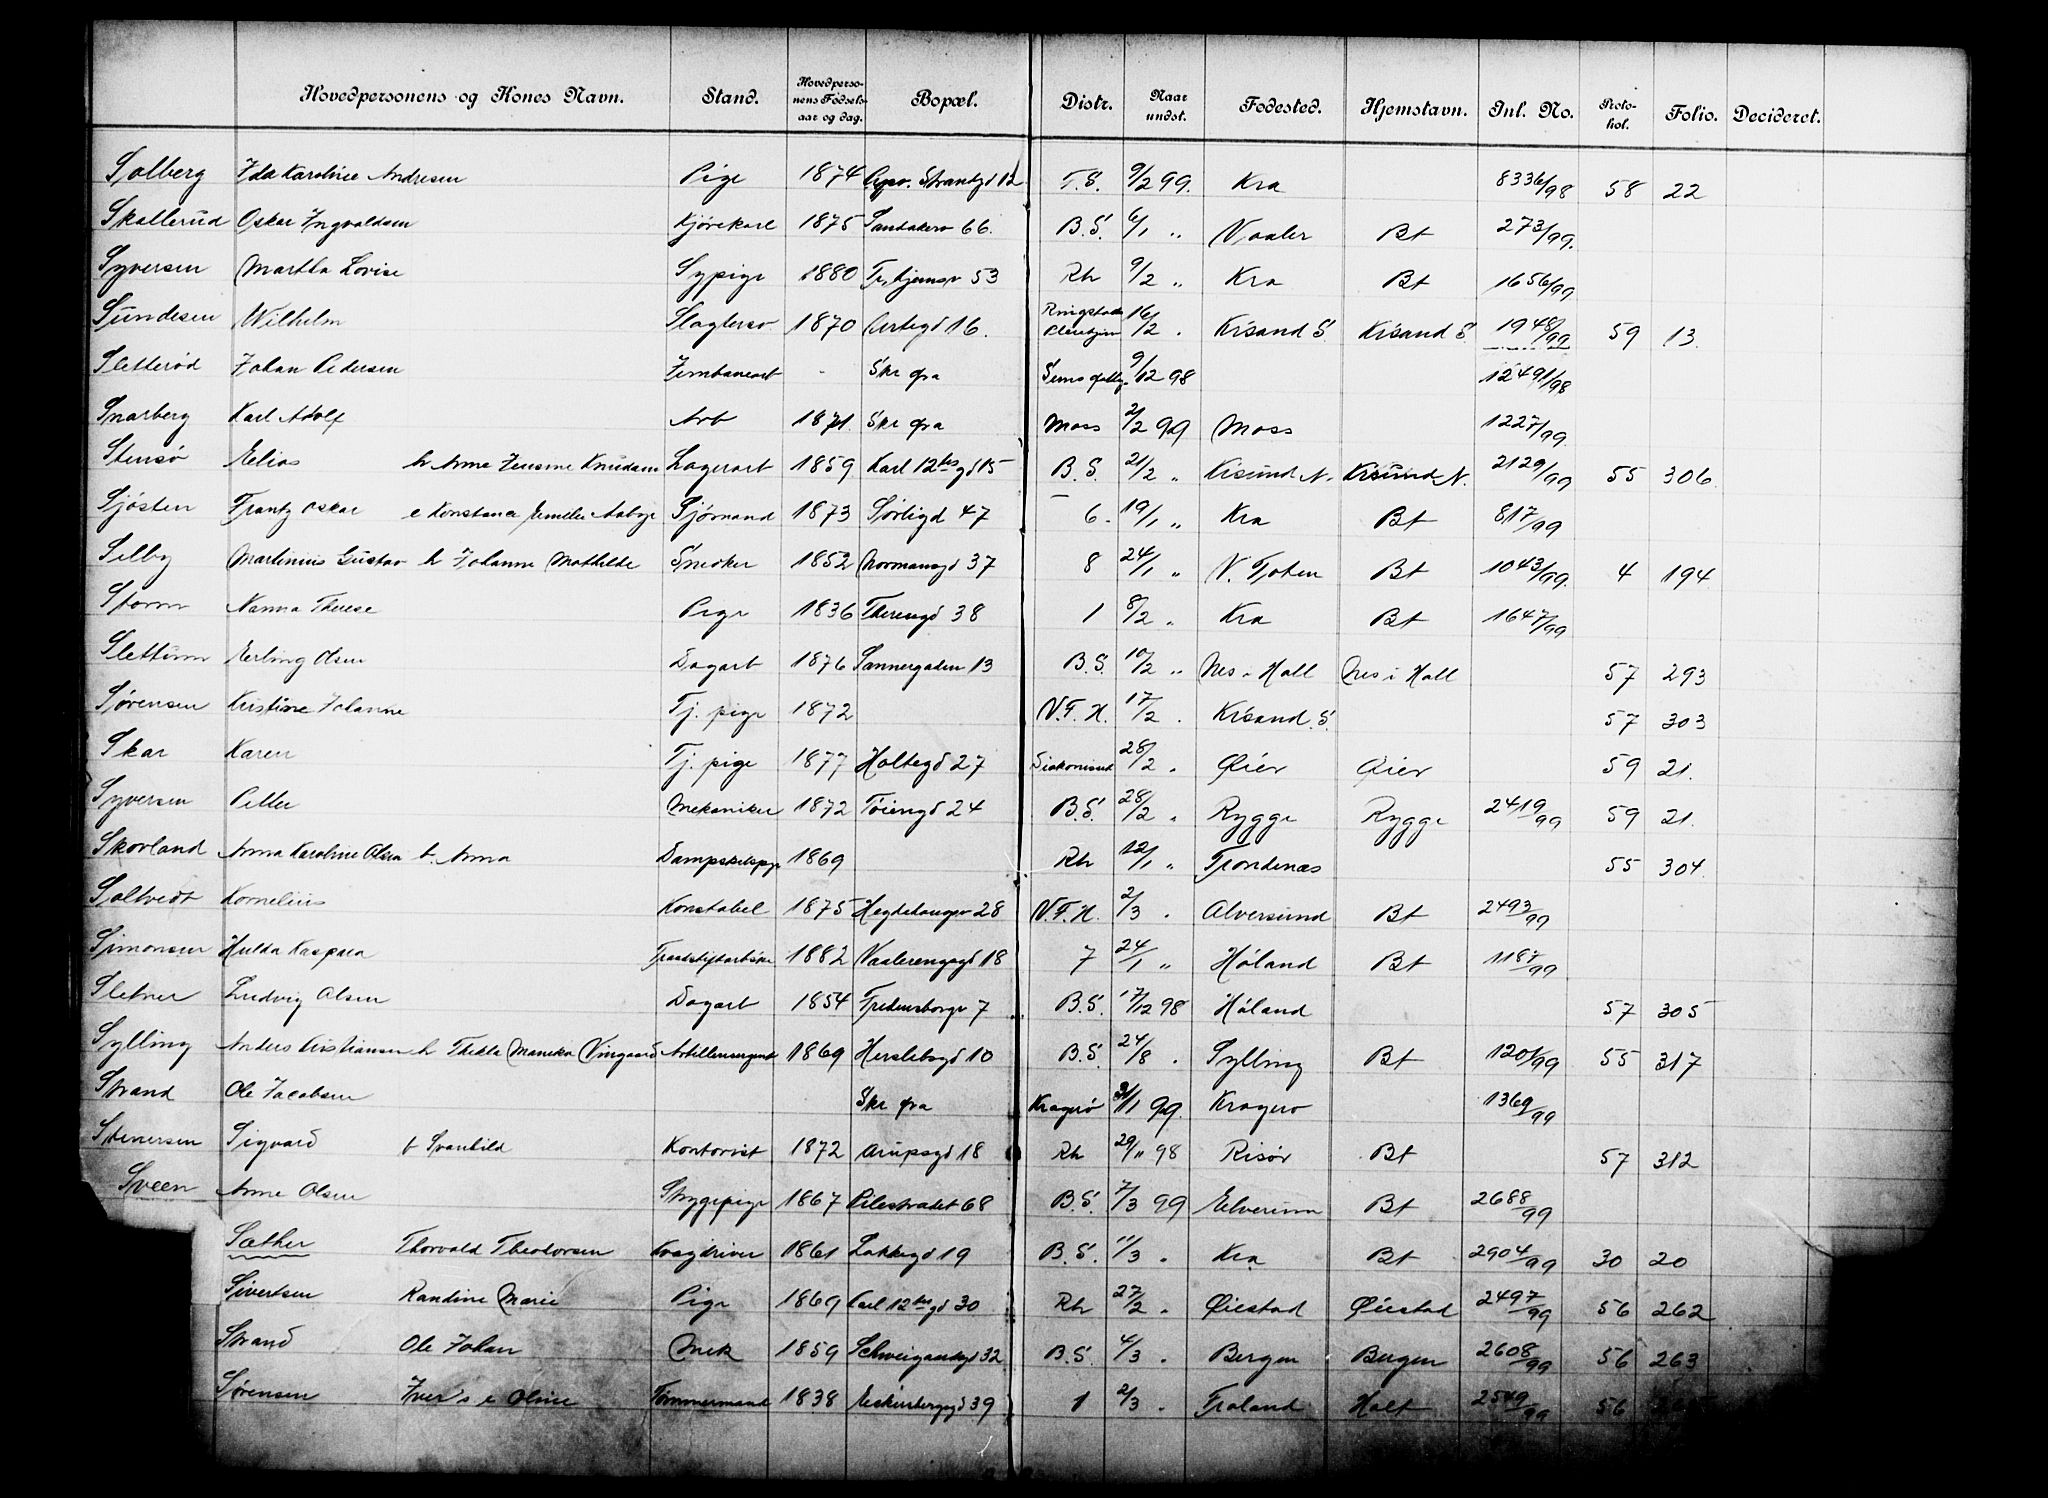 Hovedpersonens og Kones Navn. Stand. Hovedperso-nens Fødsels-aar og dag. Bopæl. Distr. Naar undst. Fødested. Hjemstavn. Inl. No. Proto-kol. Folio. Decideret.
Solberg Ida Karoline Andresen Pige 1874 Strandgd 12 T.S. 9/2 99. Kra 8336/98 58 22
Skallerud Oskar Ingvaldsen Kjørekarl 1875 Sandakerv 66. B.S. 6/1 „ Vaaler Bt 273/99.
Syversen Martha Lovise Sypige 1880 Tr.hjemsv 53 Rh 9/2 „ Kra Bt 1656/99
Sundesen Wilhelm Slagtersv 1870 16. Ringstads 16/2 . Krsand S. Krsand S. 1948/99 59 13.
Sletterød Johan Pedersen Jernbanearb - Skr fra 9/12 98 12491/98
Snarberg Karl Adolf Arb 1871 Skr fra Moss 2/2 99 Moss 1227/99.
Stensø Elias h Anna Jensine Knudsen Lagerarb 1859 Karl 12tes gd 15 B.S. 21/2 „ Krsund N. Krsund N. 2129/99 55 306.
Sjösten Frantz Oskar e Konstance Emelie Aaboe Sjømand 1873 Sørligd 47 6. 19/1 „ Kra Bt 817/99
Selby Martinius Gustav h Johanne Mathilde Snedker 1852 Normansgd 37 8 24/1 „ V. Toten Bt 1043/99. 4 194.
Storm Nanna Therese Pige 1836 Theresesgd 38 1 8/2 „ Kra Bt 1647/99
Slettum Erling Olsen Dagarb 1876 Sannergaden 13 B.S. 10/2 „ Nes i Hall Nes i Hall 57 293
Sørensen Kristine Johanne Tj. pige 1872 V.F.H. 17/2 . Krsand. S. 57 303
Skar Karen Tj. pige 1877 Holtegd 27 Diakonisseh 28/2 „ Øier Øier 59 21.
Syversen Petter Mekaniker 1872 Tøiengd 24 B.S. 28/2 „ Rygge Rygge 2419/99 59 21.
Skovland Anna Karoline Olsen b. Anna Dampskibspge 1869 Rh 12/1 „ Trondenæs 55 304.
Saltvedt Kornelius Konstabel 1875 Hegdehaugsv 28 V.F.H. 2/3 . Alversund Bt 2493/99
Simonsen Hulda Kaspara Traadstiftarbske 1882 Vaalerenggd 18 7 24/1 „ Høland Bt 1187/99
Sletner Ludvig Olsen Dagarb 1854 Fredensborgv 7 B.S. 17/12 98 Høland 57 305
Sylling Anders Kristiansen h Thekla Marieka Vingaard Artillerisergeant 1869 Herslebsgd 10 B.S. 24/8 . Sylling Bt 1201/99 55 317
Strand Ole Jacobsen Skr fra Kragerø 31/1 99. Kragerø 1369/99
Stenersen Sigvard f Svanhild Kontorist 1872 Arupsgd 18 Rh 29/11 98 Risør Bt 57 312
Sveen Anne Olsen Strygepige 1867 Pilestrædet 68 B.S. 7/3 99 Elverum Bt 2688/99
Sæther Thorvald Theodorsen Kvægdriver 1861 Lakkegd 19 B.S. 11/3 „ Kra Bt 2904/99 30 20
Sivertsen Randine Marie Pige 1869 Carl 12tes gd 30 Rh 27/2 „ Øiestad Øiestad 2497/99 56 262
Strand Ole Johan Mek 1859 Schweigaardsgd 32 B.S. 4/3 . Bergen Bergen 2608/99 56 263
Sørensen Iver S e Oline Tømmermand 1838 39 1 2/3 . Froland Holt 2549/99 56